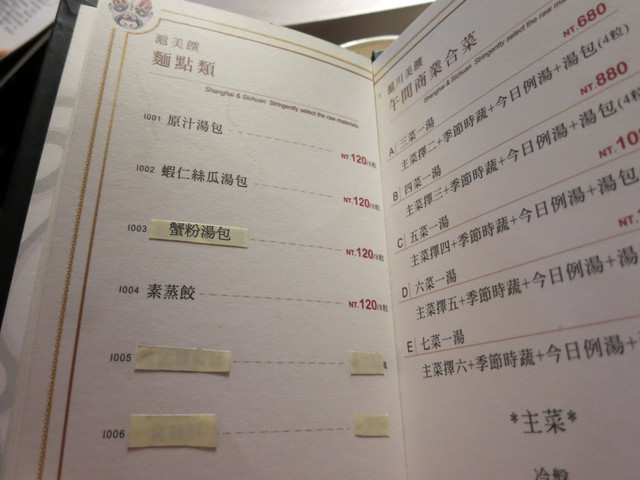 滬美饌
麵點類
Shanghai & Sichuan Stringently select the raw materials.
I001 原汁湯包
NT.120/4粒
I002 蝦仁絲瓜湯包
NT.120/4粒
I003 蟹粉湯包
NT.120/4粒
I004 素蒸餃
NT.120/8粒
I005
I006
滬川美饌
午間商業合菜
Shanghai & Sichuan Stringently select the raw mater
NT.680
A 三菜一湯
主菜擇二+季節時蔬+今日例湯+湯包(4粒)
NT.880
B 四菜一湯
主菜擇三+季節時蔬+今日例湯+湯包(4粒
NT.10
C 五菜一湯
主菜擇四+季節時蔬+今日例湯+湯包
NT.
D 六菜一湯
主菜擇五+季節時蔬+今日例湯+湯
E 七菜一湯
主菜擇六+季節時蔬+今日例湯+
*主菜*
冷盤